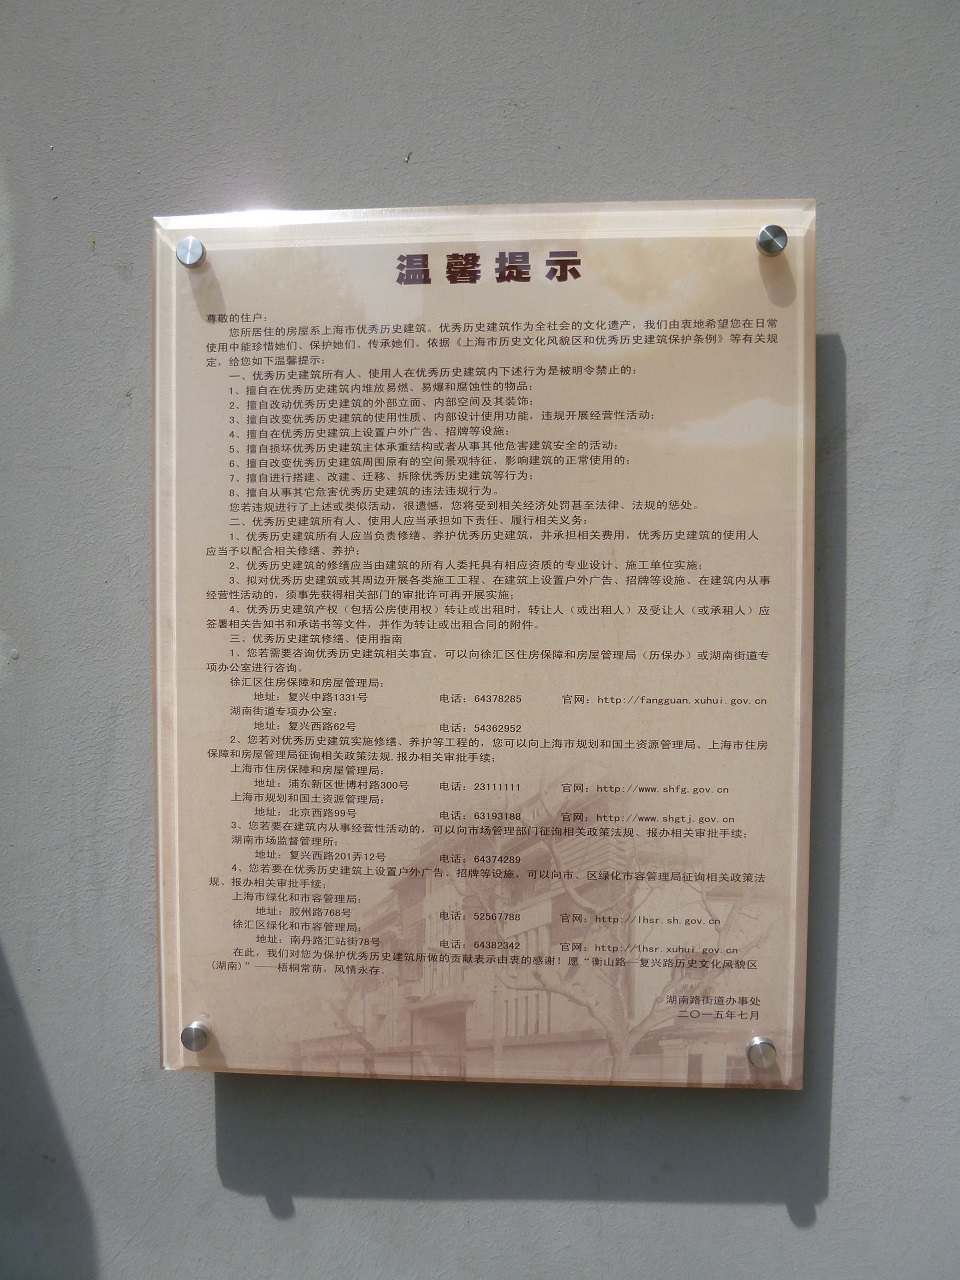 温馨提示
尊敬的住户：
您所居住的房屋系上海市优秀历史建筑。优秀历史建筑作为全社会的文化遗产，我们由衷地希望您在日常
使用中能珍惜她们、保护她们、传承她们。依据《上海市历史文化风貌区和优秀历史建筑保护条例》等有关规
定，给您如下温馨提示：
一、优秀历史建筑所有人、使用人在优秀历史建筑内下述行为是被明令禁止的：
1、擅自在优秀历史建筑内堆放易燃、易爆和腐蚀性的物品；
2、擅自改动优秀历史建筑的外部立面、内部空间及其装饰；
3、擅自改变优秀历史建筑的使用性质、内部设计使用功能，违规开展经营性活动；
4、擅自在优秀历史建筑上设置户外广告、招牌等设施；
5、擅自损坏优秀历史建筑主体承重结构或者从事其他危害建筑安全的活动；
6、擅自改变优秀历史建筑周围原有的空间景观特征，影响建筑的正常使用的；
7、擅自进行搭建、改建、迁移、拆除优秀历史建筑等行为；
8、擅自从事其它危害优秀历史建筑的违法违规行为。
您若违规进行了上述或类似活动，很遗憾，您将受到相关经济处罚甚至法律、法规的惩处。
二、优秀历史建筑所有人、使用人应当承担如下责任、履行相关义务：
1、优秀历史建筑所有人应当负责修缮、养护优秀历史建筑，并承担相关费用，优秀历史建筑的使用人
应当予以配合相关修缮、养护；
2、优秀历史建筑的修缮应当由建筑的所有人委托具有相应资质的专业设计、施工单位实施；
3、拟对优秀历史建筑或其周边开展各类施工工程、在建筑上设置户外广告、招牌等设施、在建筑内从事
经营性活动的，须事先获得相关部门的审批许可再开展实施；
4、优秀历史建筑产权（包括公房使用权）转让或出租时，转让人（或出租人）及受让人（或承租人）应
签署相关告知书和承诺书等文件，并作为转让或出租合同的附件。
三、优秀历史建筑修缮、使用指南
1、您若需要咨询优秀历史建筑相关事宜，可以向徐汇区住房保障和房屋管理局（历保办）或湖南街道专
项办公室进行咨询。
徐汇区住房保障和房屋管理局：
地址：复兴中路1331号 电话：64378285 官网：http://fangguan.xuhui.gov.cn
湖南街道专项办公室：
地址：复兴西路62号 电话：54362952
2、您若对优秀历史建筑实施修缮、养护等工程的，您可以向上海市规划和国土资源管理局、上海市住房
保障和房屋管理局征询相关政策法规，报办相关审批手续；
上海市住房保障和房屋管理局：
地址：浦东新区世博村路300号 电话：23111111 官网：http://www.shfg.gov.cn
上海市规划和国土资源管理局：
地址：北京西路99号 电话：63193188 官网：http://www.shgtj.gov.cn
3、您若要在建筑内从事经营性活动的，可以向市场管理部门征询相关政策法规、报办相关审批手续；
湖南市场监督管理所：
地址：复兴西路201弄12号 电话：64374289
4、您若要在优秀历史建筑上设置户外广告、招牌等设施，可以向市、区绿化市容管理局征询相关政策法
规、报办相关审批手续；
上海市绿化和市容管理局：
地址：胶州路768号 电话：52567788 官网：http://lhsr.sh.gov.cn
徐汇区绿化和市容管理局：
地址：南丹路汇站街78号 电话：64382342 官网：http://lhsr.xuhui.gov.cn
在此，我们对您为保护优秀历史建筑所做的贡献表示由衷的感谢！愿“衡山路—复兴路历史文化风貌区
（湖南）”——梧桐常荫，风情永存。
湖南路街道办事处
二〇一五年七月